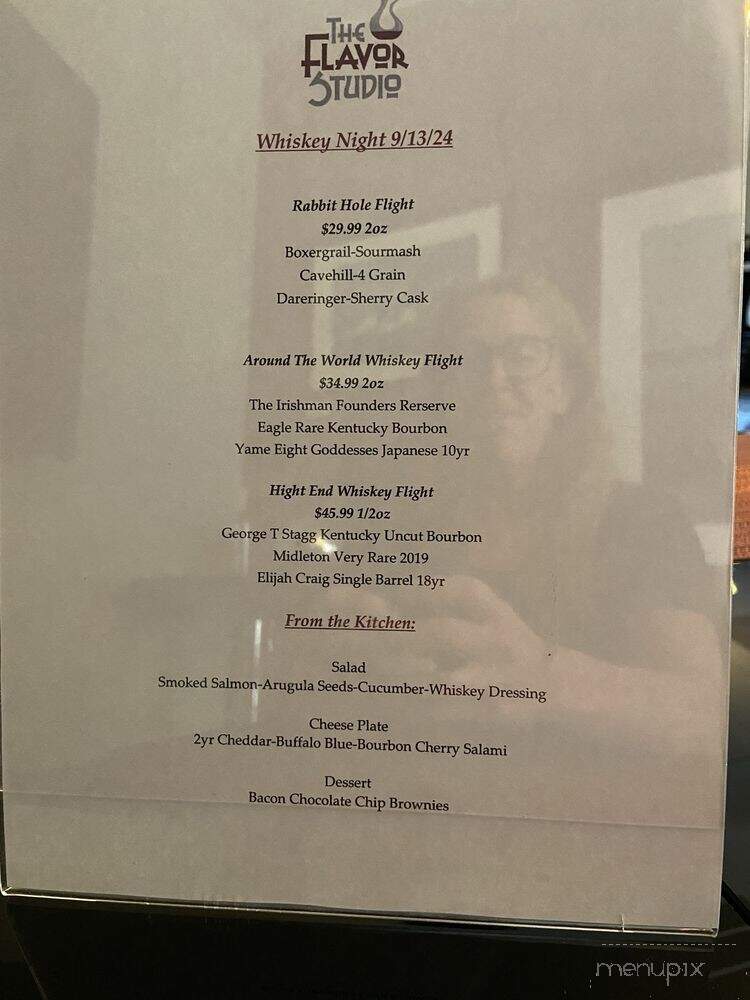 THE
FLAVOR
STUDIO
Whiskey Night 9/13/24
Rabbit Hole Flight
$29.99 2oz
Boxergrail-Sourmash
Cavehill-4 Grain
Dareringer-Sherry Cask
Around The World Whiskey Flight
$34.99 2oz
The Irishman Founders Rerserve
Eagle Rare Kentucky Bourbon
Yame Eight Goddesses Japanese 10yr
Hight End Whiskey Flight
$45.99 1/2oz
George T Stagg Kentucky Uncut Bourbon
Midleton Very Rare 2019
Elijah Craig Single Barrel 18yr
From the Kitchen:
Salad
Smoked Salmon-Arugula Seeds-Cucumber-Whiskey Dressing
Cheese Plate
2yr Cheddar-Buffalo Blue-Bourbon Cherry Salami
Dessert
Bacon Chocolate Chip Brownies
menupix